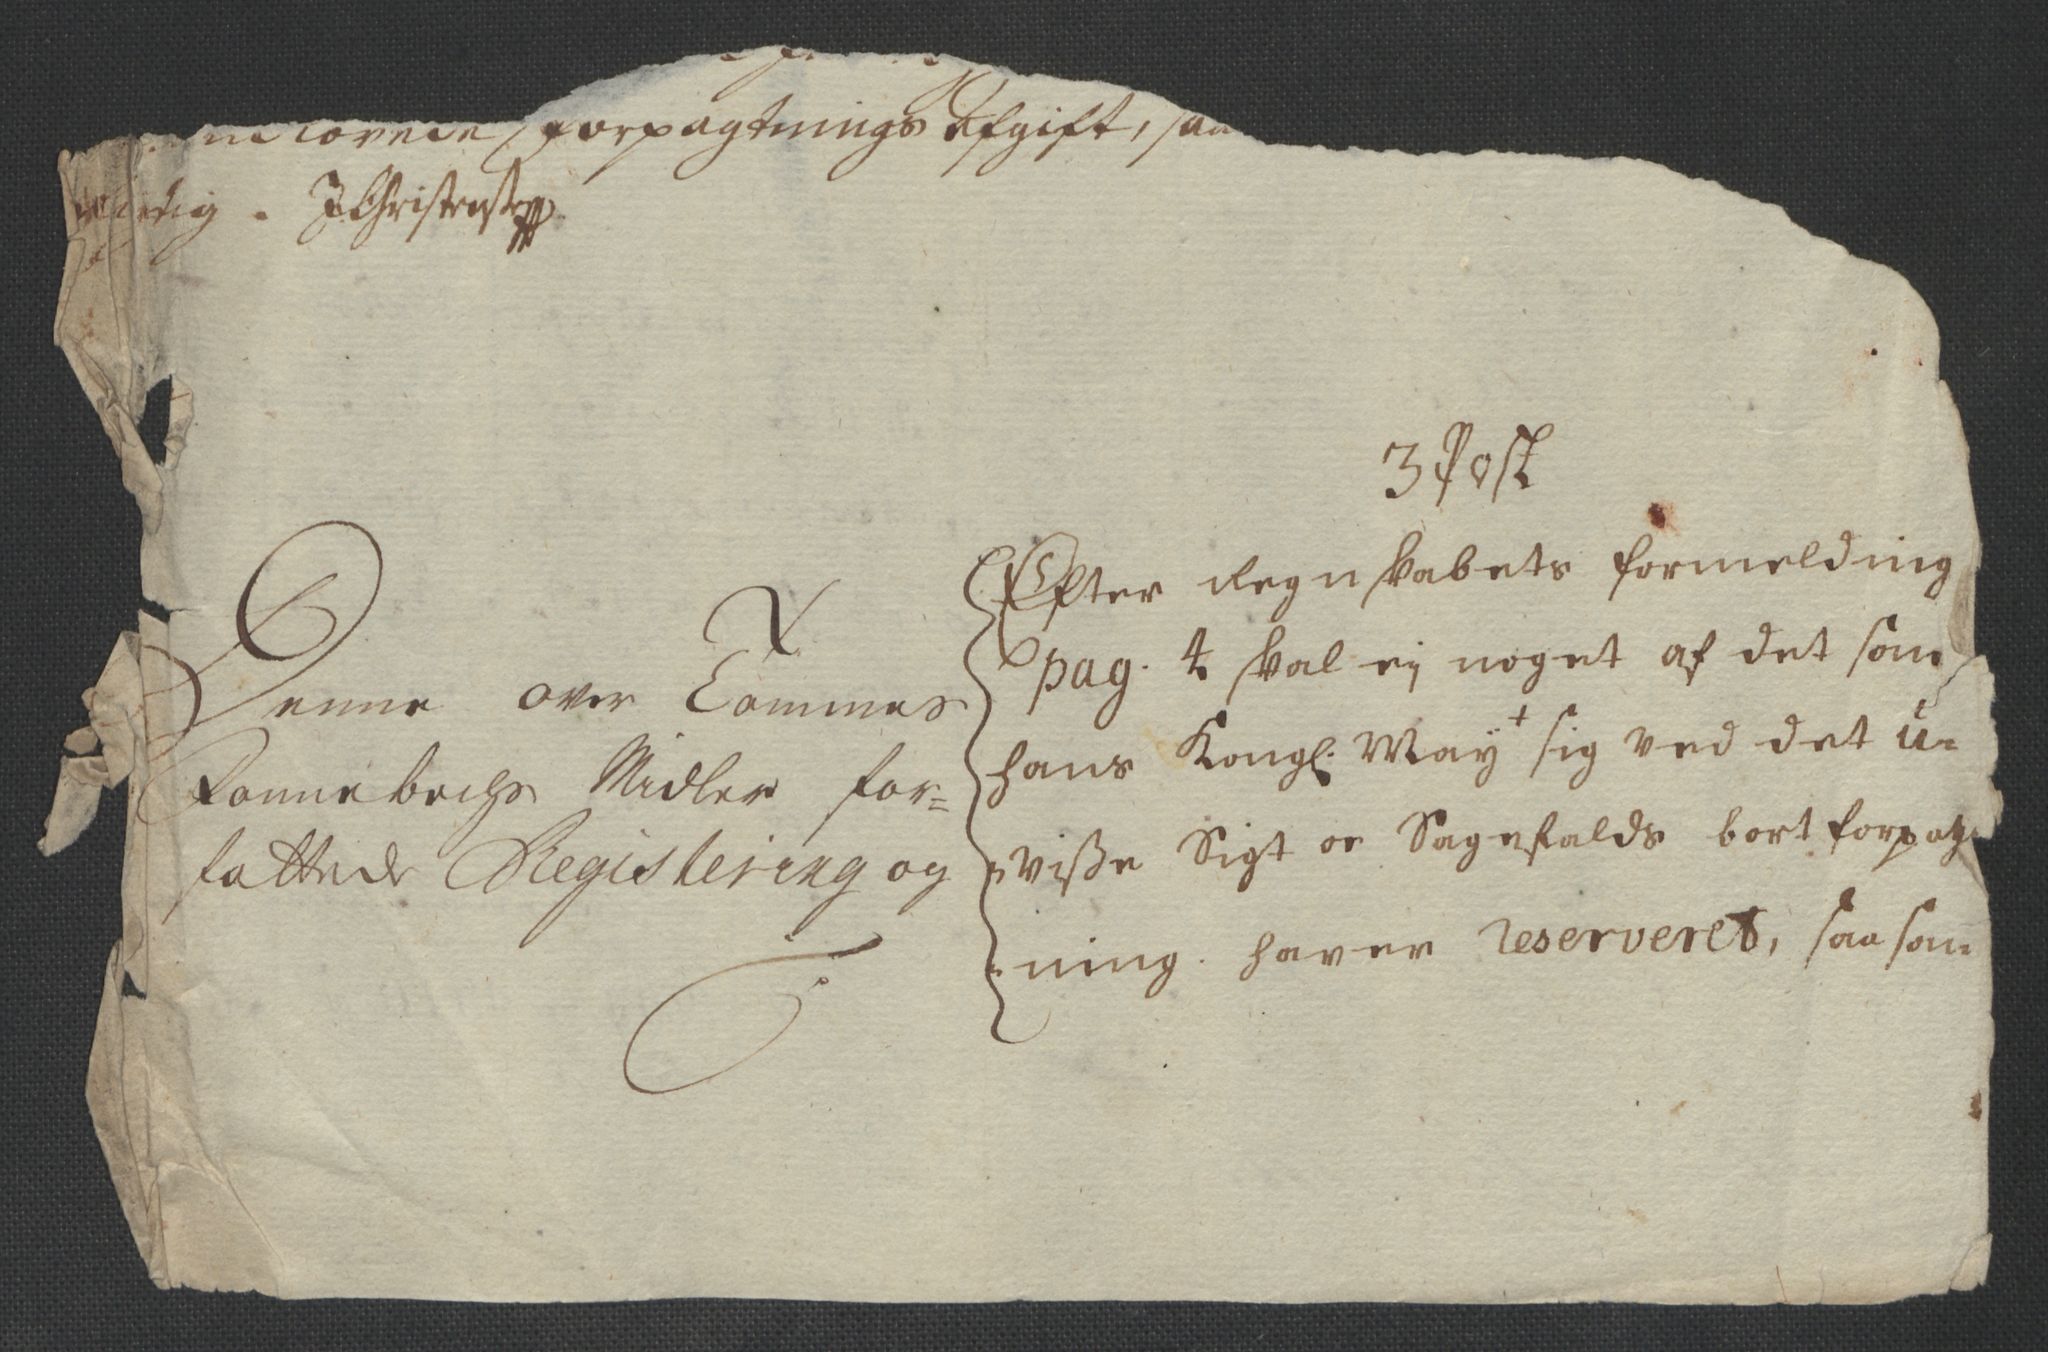 forpagtnings Afgift, saa
J Christensen
3 Post
Denne over Tommes
Tonnebechs Midler for=
fattede Registering og
Efter Regnskabets formelding
pag. 4 skal ej noget af det som
hans Kongl. May^t sig ved det u-
visse Sigt oc Sagefalds bort forpagt
ning haver reserveret, saa som